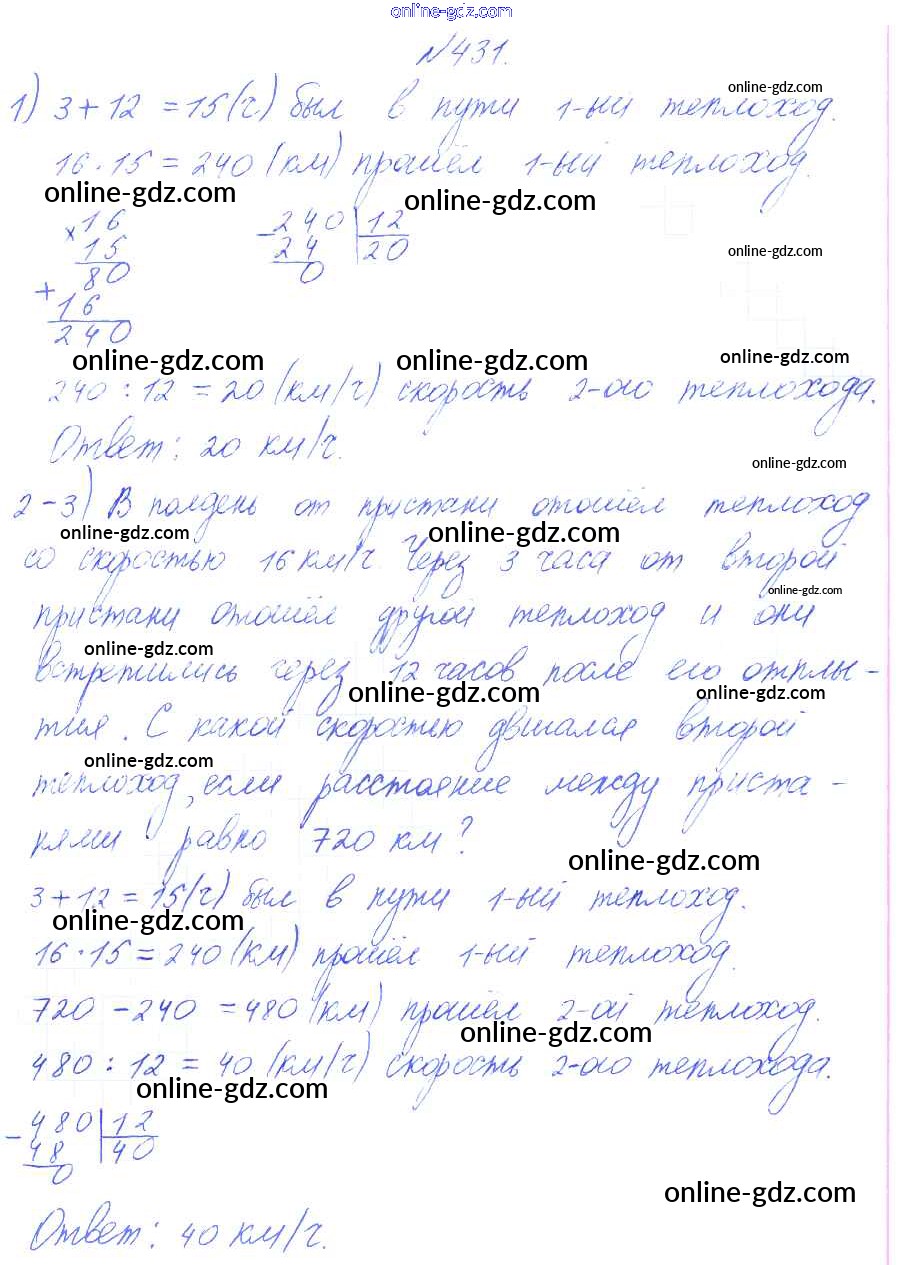 online-gdz.com
№431.
online-gdz.com
1) 3+12 =15(ч) был в пути 1-ый теплоход.
16·15 = 240 (км) прошёл 1-ый теплоход.
online-gdz.com online-gdz.com
×16 -240 |12
15 24 20
80 0
online-gdz.com
+
16
240
online-gdz.com online-gdz.com online-gdz.com
240 : 12 = 20 (км/ч) скорость 2-ого теплохода.
Ответ: 20 км/ч.
online-gdz.com
2-3) В полдень от пристани отошёл теплоход
online-gdz.com online-gdz.com
со скоростью 16 км/ч. Через 3 часа от второй
online-gdz.com
пристани отошёл другой теплоход и они
online-gdz.com
встретились через 12 часов после его отплы-
online-gdz.com online-gdz.com
тия. С какой скоростью двигался второй
online-gdz.com
теплоход, если расстояние между приста-
нями равно 720 км?
online-gdz.com
3+12 = 15(ч) был в пути 1-ый теплоход.
online-gdz.com
16·15 = 240 (км) прошёл 1-ый теплоход.
720 - 240 = 480 (км) прошёл 2-ой теплоход.
online-gdz.com
480 : 12 = 40 (км/ч) скорость 2-ого теплохода.
online-gdz.com
-480 |12
48 40
0
online-gdz.com
Ответ: 40 км/ч.